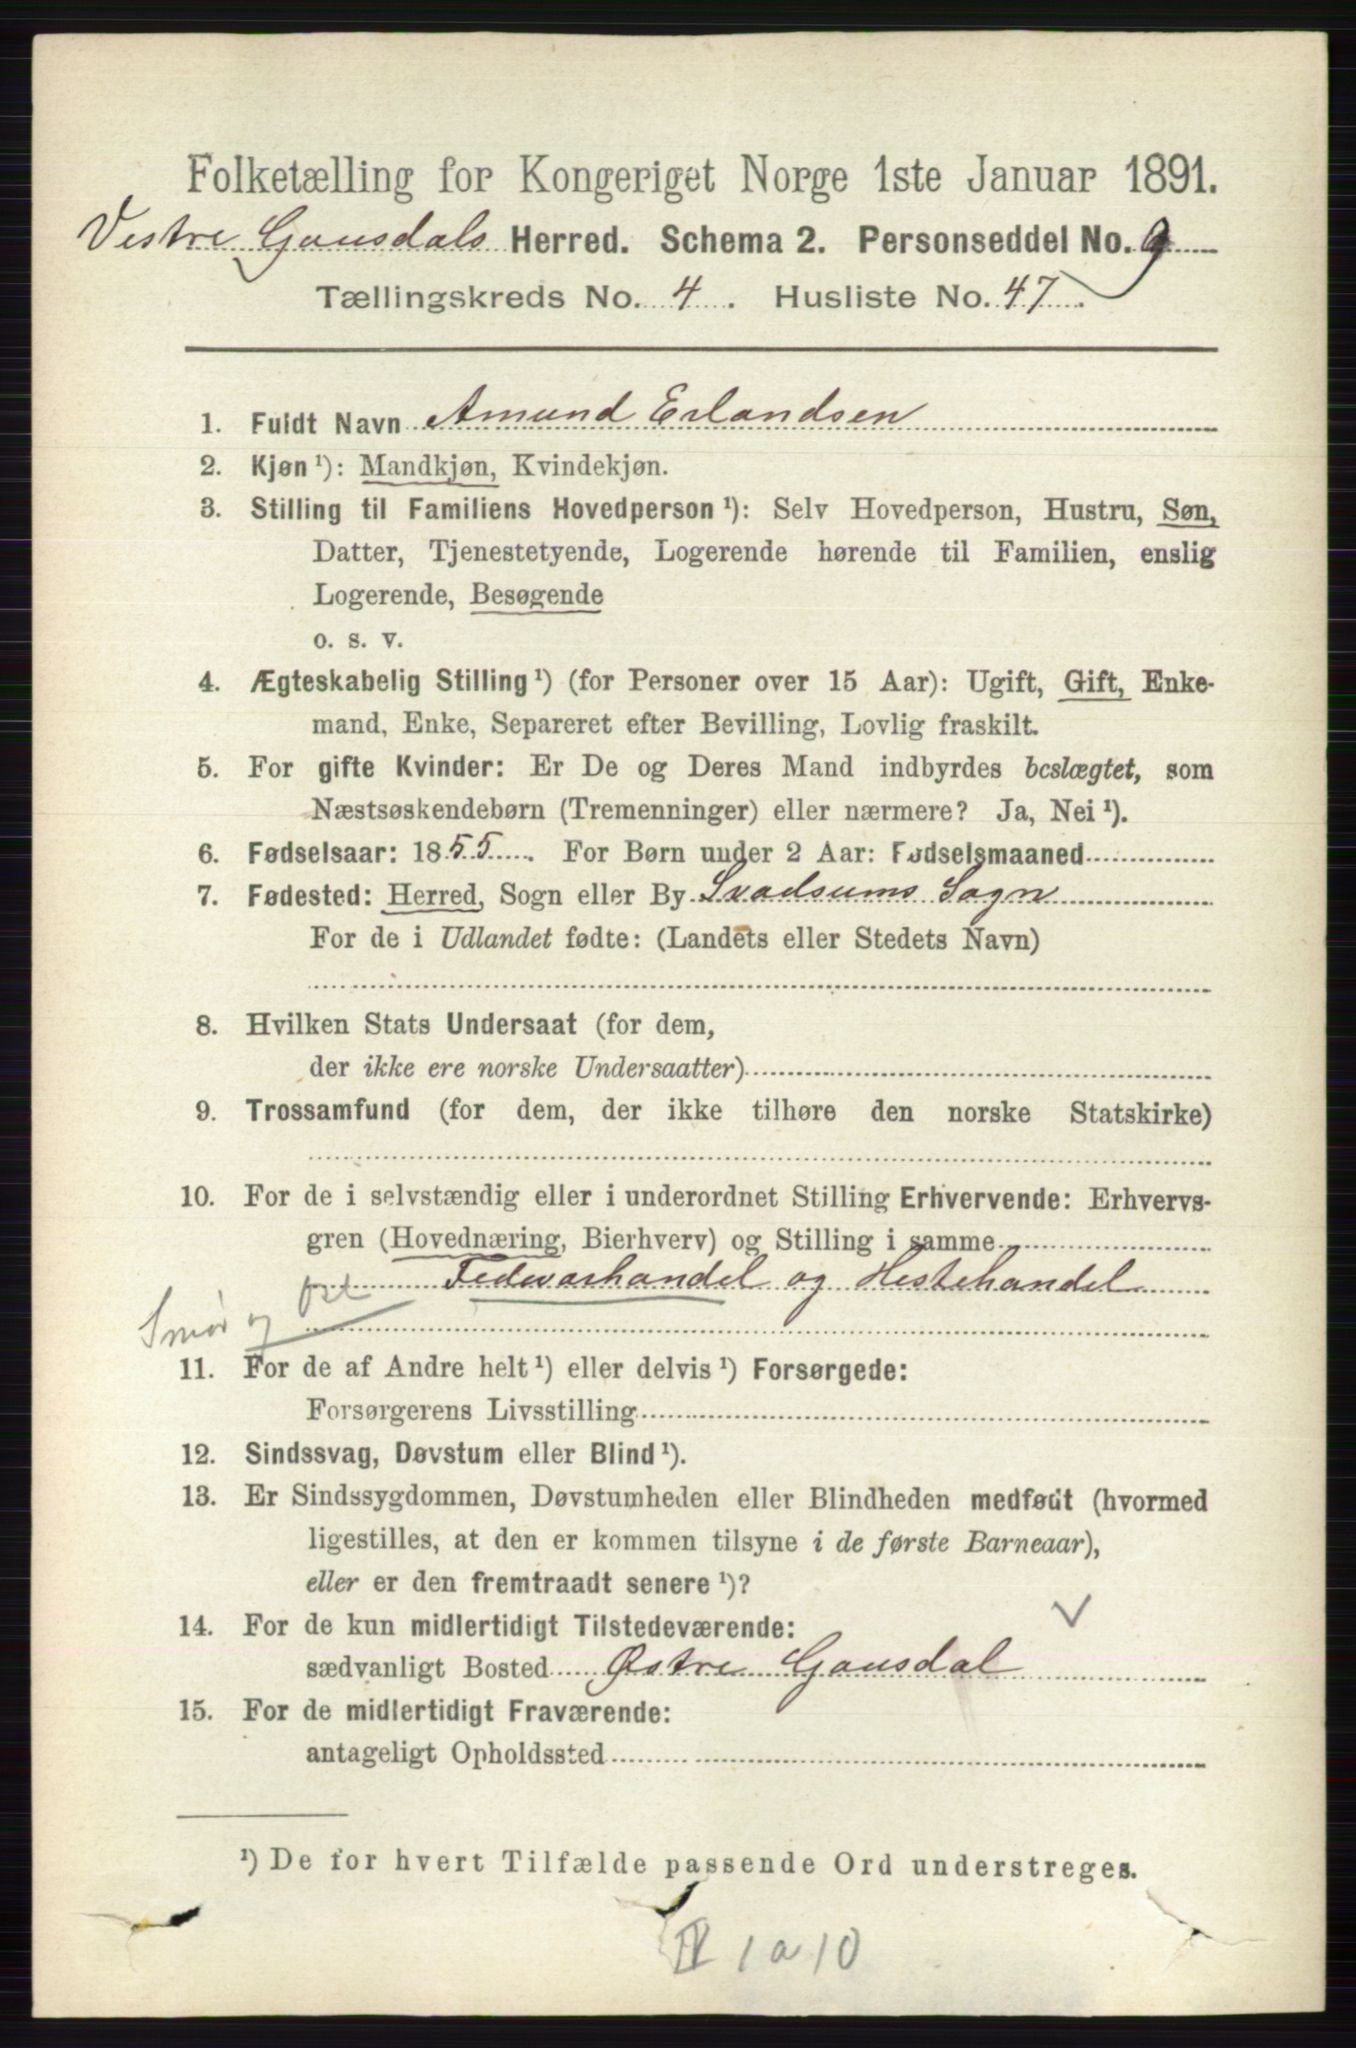 Folketælling for Kongeriget Norge 1ste Januar 1891.
Vestre Gausdals Herred. Schema 2. Personseddel No. 9
Tællingskreds No. 4. Husliste No. 47.
1. Fuldt Navn Amund Erlandsen
2. Kjøn ¹): Mandkjøn, Kvindekjøn.
3. Stilling til Familiens Hovedperson ¹): Selv Hovedperson, Hustru, Søn,
Datter, Tjenestetyende, Logerende hørende til Familien, enslig
Logerende, Besøgende
o. s. v.
4. Ægteskabelig Stilling ¹) (for Personer over 15 Aar): Ugift, Gift, Enke-
mand, Enke, Separeret efter Bevilling, Lovlig fraskilt.
5. For gifte Kvinder: Er De og Deres Mand indbyrdes beslægtet, som
Næstsøskendebørn (Tremenninger) eller nærmere? Ja, Nei ¹).
6. Fødselsaar: 1855. For Børn under 2 Aar: Fødselsmaaned
7. Fødested: Herred, Sogn eller By Svadsums Sogn
For de i Udlandet fødte: (Landets eller Stedets Navn)
8. Hvilken Stats Undersaat (for dem,
der ikke ere norske Undersaatter)
9. Trossamfund (for dem, der ikke tilhøre den norske Statskirke)
10. For de i selvstændig eller i underordnet Stilling Erhvervende: Erhvervs-
gren (Hovednæring, Bierhverv) og Stilling i samme
Fedevarhandel og Hestehandel
Smør og ost
11. For de af Andre helt ¹) eller delvis ¹) Forsørgede:
Forsørgerens Livsstilling
12. Sindssvag, Døvstum eller Blind ¹).
13. Er Sindssygdommen, Døvstumheden eller Blindheden medfødt (hvormed
ligestilles, at den er kommen tilsyne i de første Barneaar),
eller er den fremtraadt senere ¹)?
14. For de kun midlertidigt Tilstedeværende:
sædvanligt Bosted Østre Gausdal
15. For de midlertidigt Fraværende:
antageligt Opholdssted
¹) De for hvert Tilfælde passende Ord understreges.
IV 1 a 10